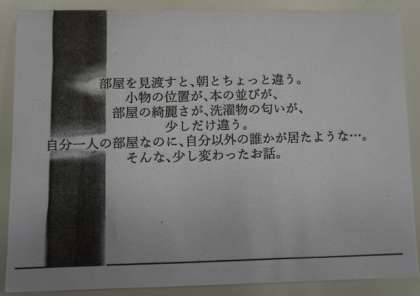 部屋を見渡すと、朝とちょっと違う。
小物の位置が、本の並びが、
部屋の綺麗さが、洗濯物の匂いが、
少しだけ違う。
自分一人の部屋なのに、自分以外の誰かが居たような…。
そんな、少し変わったお話。